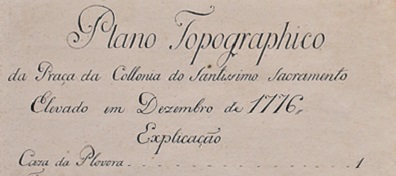 Plano Topographico
da Praça da Collonia do Santissimo Sacramento
Elevado em Dezembro de 1776,
Explicação
Caza da Plovora - - - - - - - - - - - - - - 1